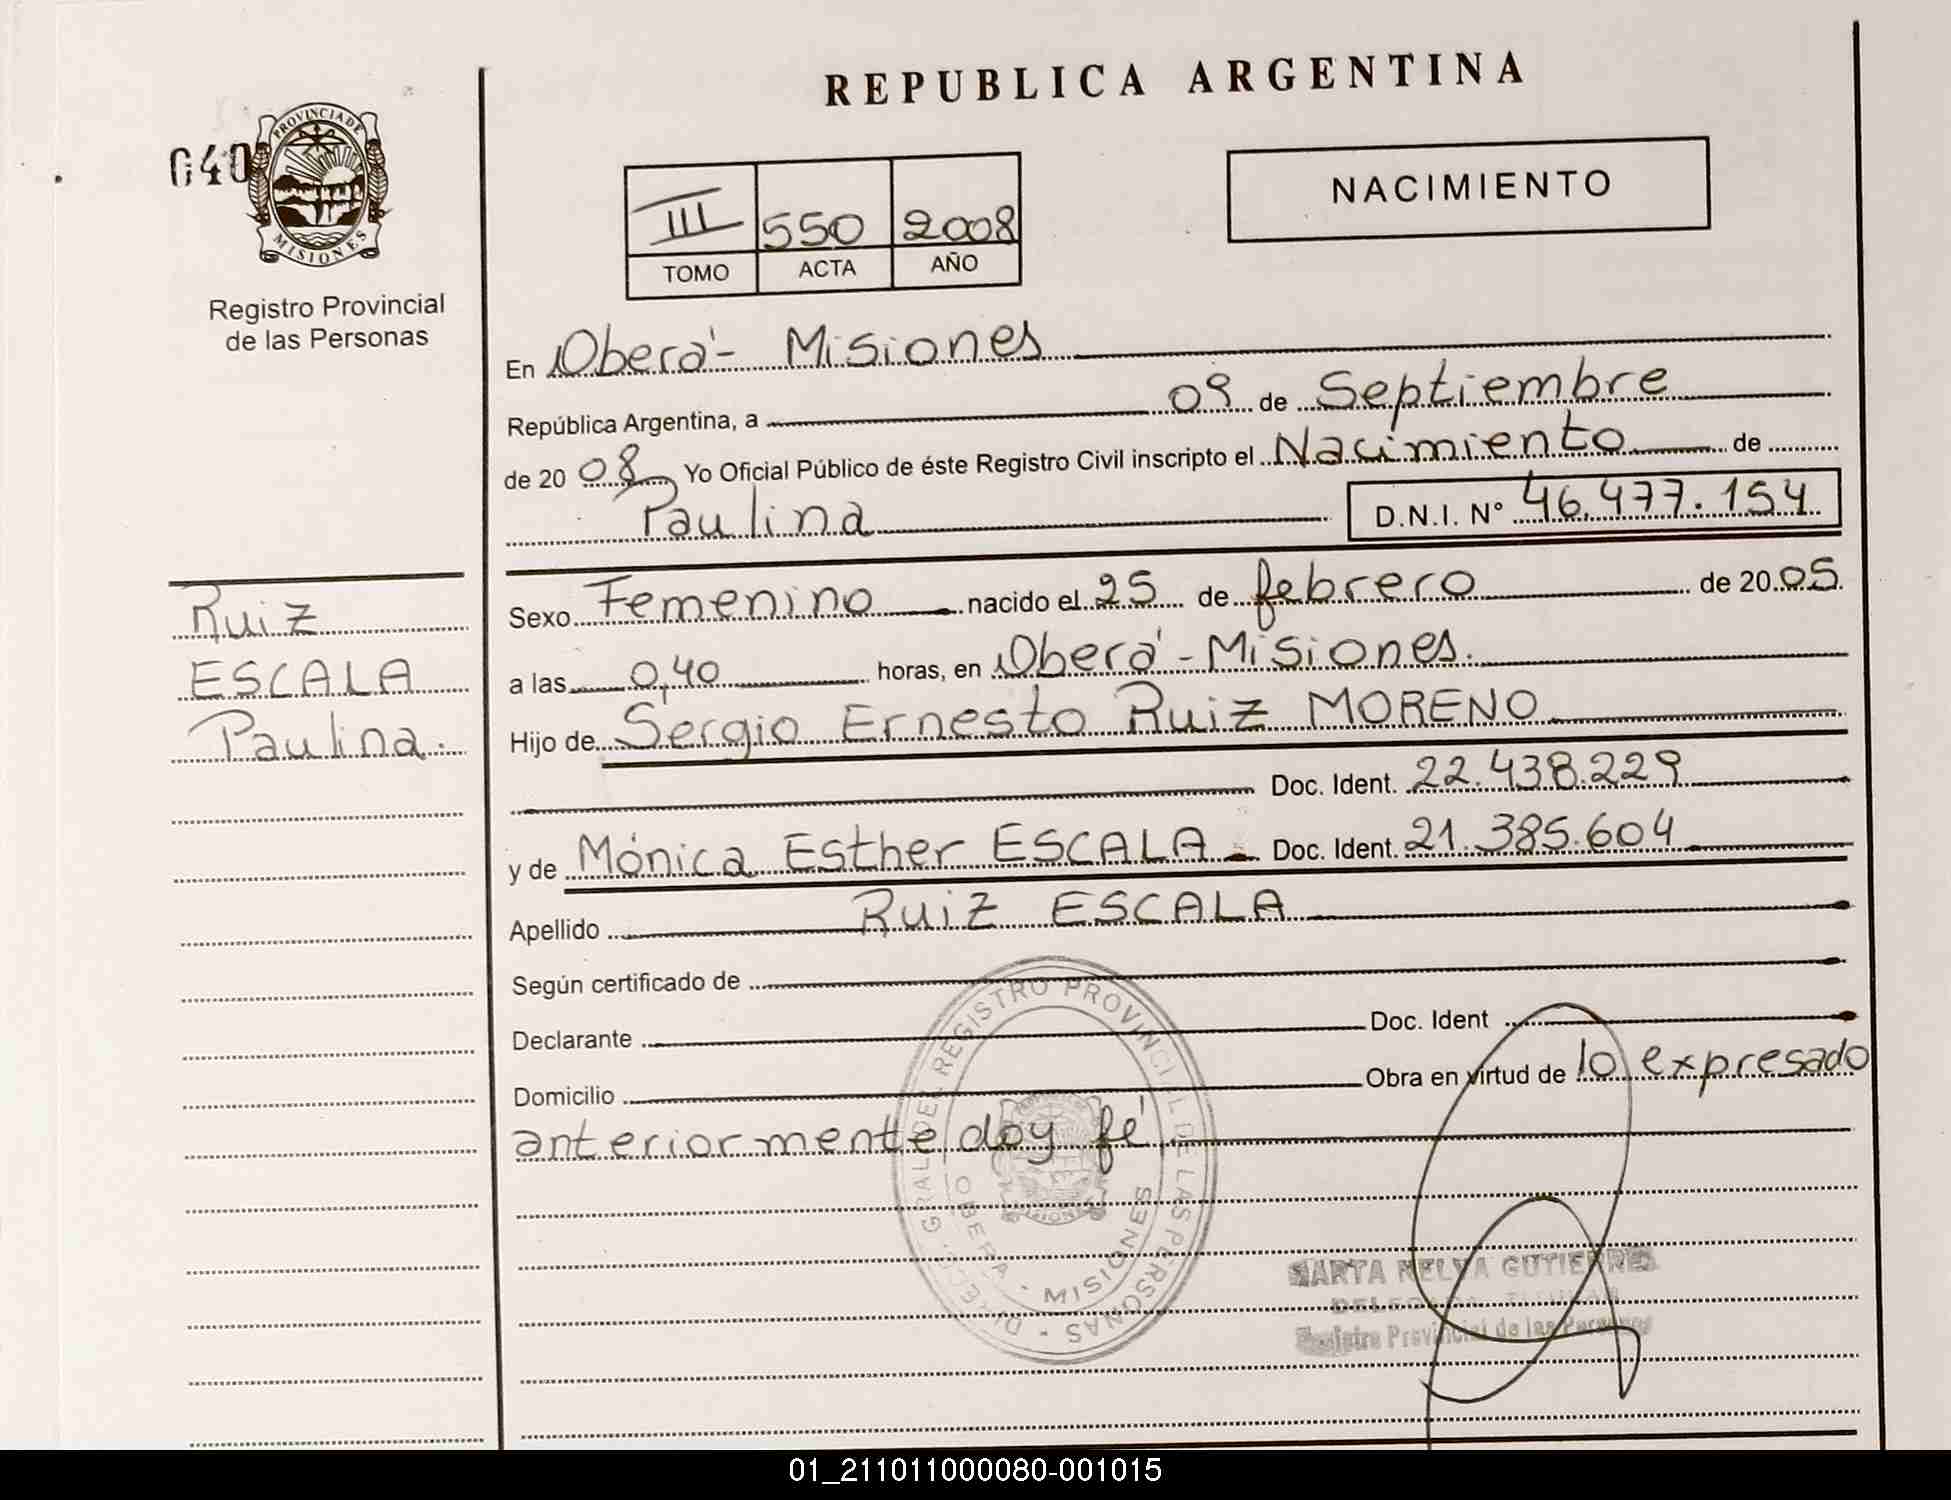 REPUBLICA ARGENTINA
040
PROVINCIA DE
MISIONES
Registro Provincial
de las Personas
III 550 2008
TOMO ACTA AÑO
NACIMIENTO
En Oberá - Misiones
República Argentina, a 09 de Septiembre
de 20 08 Yo Oficial Público de éste Registro Civil inscripto el Nacimiento de
Paulina D.N.I. N° 46.477.154
Ruiz
ESCALA
Paulina.
Sexo Femenino nacido el 25 de febrero de 20 05.
a las 0,40 horas, en Oberá - Misiones.
Hijo de Sergio Ernesto Ruiz MORENO
Doc. Ident. 22.438.229
y de Mónica Esther ESCALA Doc. Ident. 21.385.604
Apellido Ruiz ESCALA
Según certificado de
Declarante Doc. Ident
Domicilio Obra en virtud de lo expresado
anteriormente doy fé
DIRECC. GRAL DEL REGISTRO PROVINCIAL DE LAS PERSONAS
OBERA - MISIONES
MARTA NELVA GUTIERRES
DELEGADA TITULAR
Registro Provincial de las Personas
01_211011000080-001015